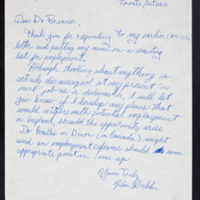 Toronto, Ontario
Dear Dr Brenner
Thank you for responding to my earlier
letter and putting my name on a waiting
list for employment.
Although thinking about anything is
actively discouraged at my present
job as a dishwasher, I will let
you know if I develop any plans that
would with potential employment
in England, should the opportunity arise.
Dr in (in Canada) might
send an employment reference should some
appropriate position come up
Yours Truly